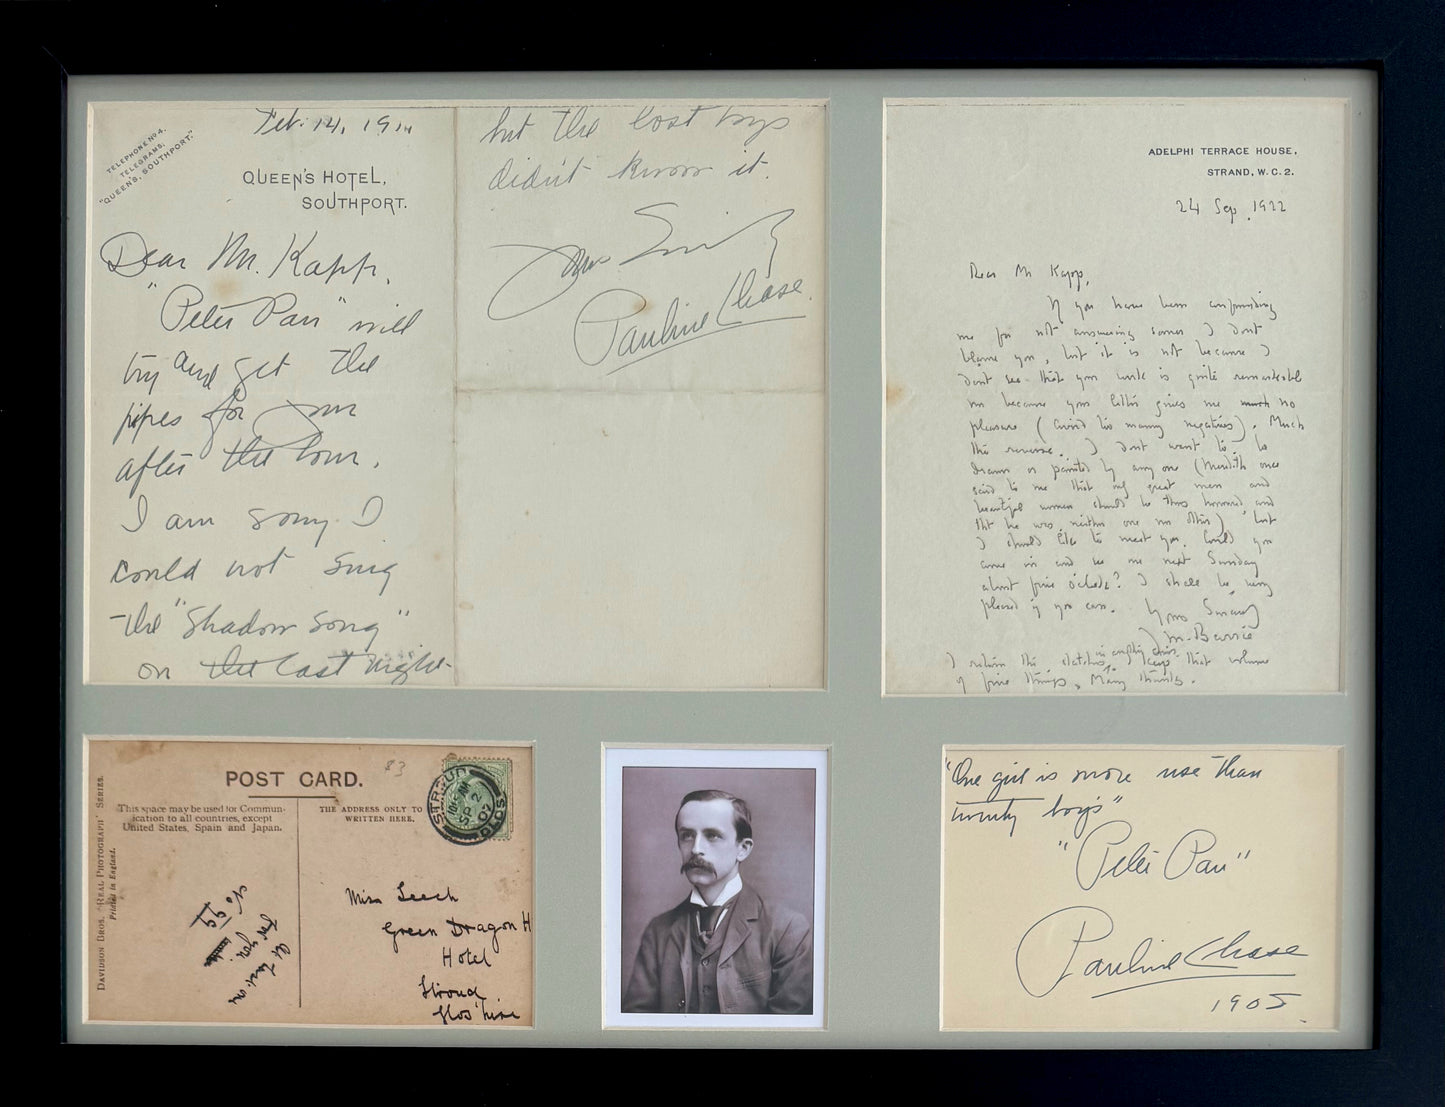 Feb. 14, 1914
TELEPHONE No 4.
TELEGRAMS:
"QUEEN'S, SOUTHPORT."
QUEEN'S HOTEL,
SOUTHPORT.
Dear Mr. Kapp,
"Peter Pan" will
try and get the
pipes for your
after the tour.
I am sorry I
could not sing
the "Shadow song"
on the last night
but the lost boys
didn't know it.
Yours Sincerely
Pauline Chase.
ADELPHI TERRACE HOUSE,
STRAND, W.C.2.
24 Sep. 1922
Dear Mr Kapp,
If you have been
me for not answering sooner I don't
blame you, but it is not because I
don't see that your work is quite remarkable
nor because your letter gives me much no
pleasure (Avoid too many negatives). Much
the reverse. I don't want to be
drawn or painted by any one (Meredith once
said to me that only great men and
beautiful women should be thus honoured and
that he was neither one nor other) but
I should like to meet you. Could you
come in and see me next Sunday
about five o'clock? I shall be very
pleased if you can. Yours Sincerely
J. M. Barrie
I return the sketches, keep that volume
of fine things. Many thanks.
POST CARD.
83
This space may be used for Commun-
ication to all countries, except
United States, Spain and Japan.
THE ADDRESS ONLY TO
WRITTEN HERE.
DAVIDSON BROS. "REAL PHOTOGRAPH" SERIES.
Printed in England.
STROUD
SP 2
07
GLOS
No 99
for you.
At last one
Miss Leech
Green Dragon H
Hotel
Stroud
Glos'hire
"One girl is more use than
twenty boys"
"Peter Pan"
Pauline Chase
1905.